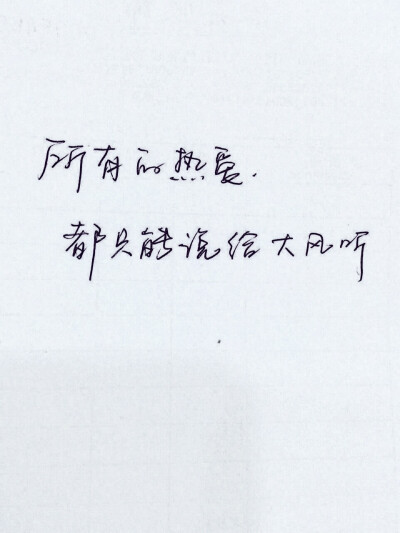 所有的热爱.
都只能说给大风听